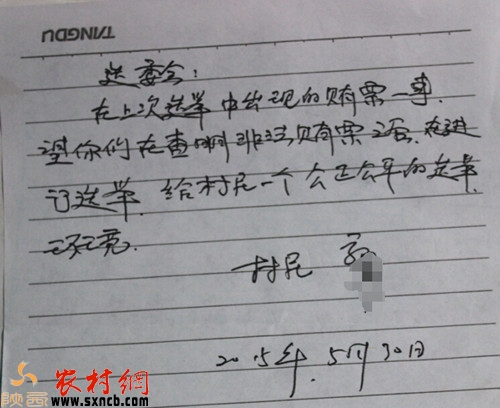 TANGDU
选委会:
在上次选举中出现的贿票一事.
望你们在查明非法贿票之后.在进
行选举.给村民一个公正公平的选举
环境.
村民
2015年.5月30日
陕西
农村網
www.sxncb.com